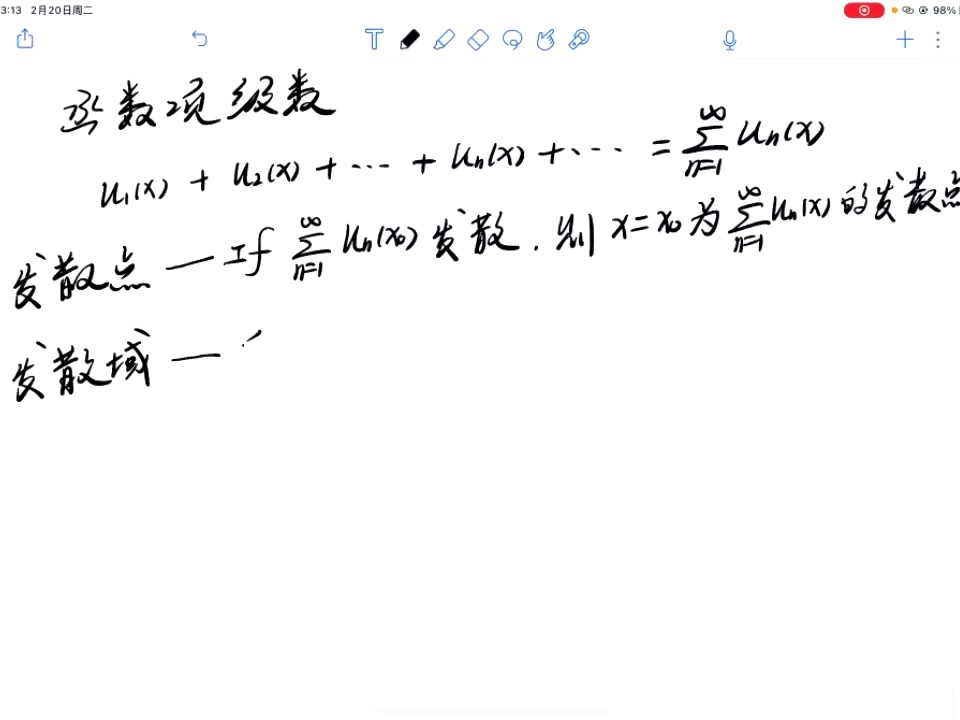 3:13 2月20日周二 98%
函数项级数
u₁(x) + u₂(x) + ⋯ + uₙ(x) + ⋯ = ∑_{n=1}^{∞} uₙ(x)
发散点 — If ∑_{n=1}^{∞} uₙ(x₀) 发散, 则 x=x₀ 为 ∑_{n=1}^{∞} uₙ(x) 的发散点
发散域 —